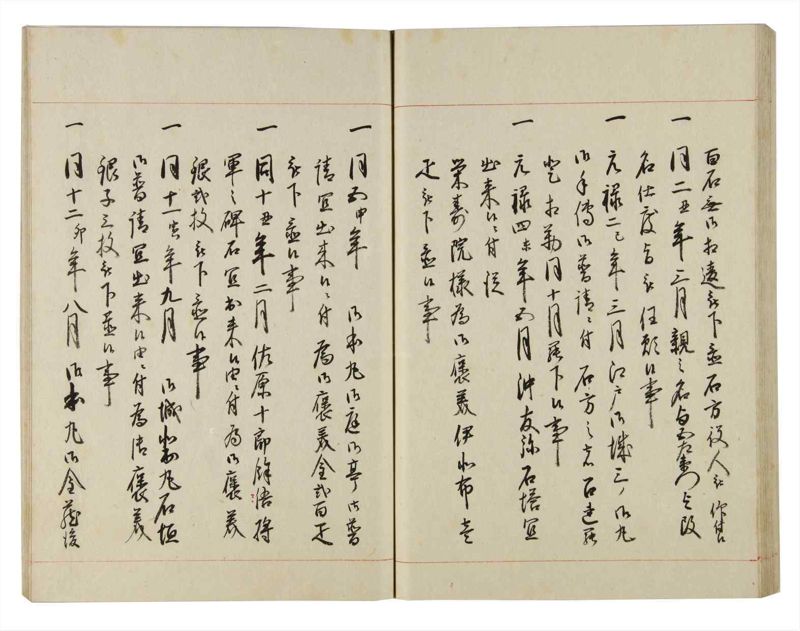 百石無御相違被下置石方役人被 仰付
一 同二丑年三月親之名与右衛門与改
名仕度旨被 任願候事
一 元禄二巳年三月江戸御城三ノ御丸
御手傳御普請ニ付石方之者召連罷
登相勤同十月罷下候事
一 元禄四未年五月沖友弥石塔宜
出来候ニ付従
栄寿院様為御褒美伊北布壱
疋被下置候事
一 同五申年 御本丸御庭御亭御普
請宜出来候ニ付為御褒美金弐百疋
被下置候事
一 同十丑年二月佐原十郎 将
軍之碑石宜出来候由ニ付為御褒美
銀弐枚被下置候事
一 同十一寅年九月 御城 丸石垣
御普請宜出来候由ニ付為御褒美
銀子三枚被下置候事
一 同十二卯年八月 御本丸御金蔵後